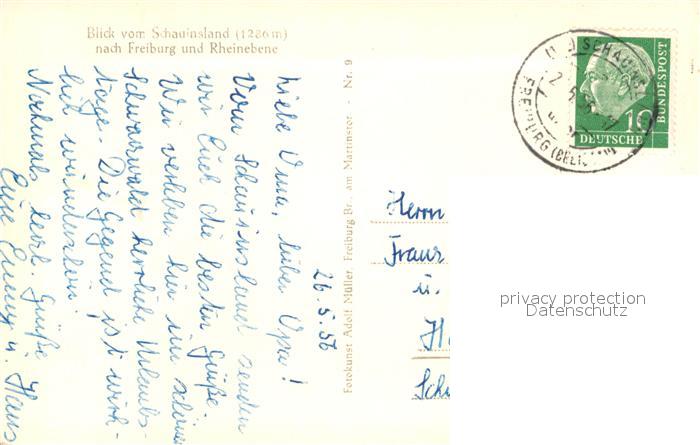 Blick vom Schauinsland (1286 m)
nach Freiburg und Rheinebene
26.5.56
Liebe Oma, lieber Opa!
Vom Schauinsland senden
wir Euch die besten Grüße.
Wir verleben hier im schönen
Schwarzwald herrliche Urlaubs-
tage. Die Gegend ist wirk-
lich wunderschön.
Nochmals herzl. Grüße
Eure Emmy u. Hans
Fotokunst Adolf Müller, Freiburg Br. am Martinstor - Nr. 9
SCHAUINSL
FREIBURG (BREISGAU)
10
DEUTSCHE
BUNDESPOST
Herrn
Franz
u.
privacy protection
Datenschutz